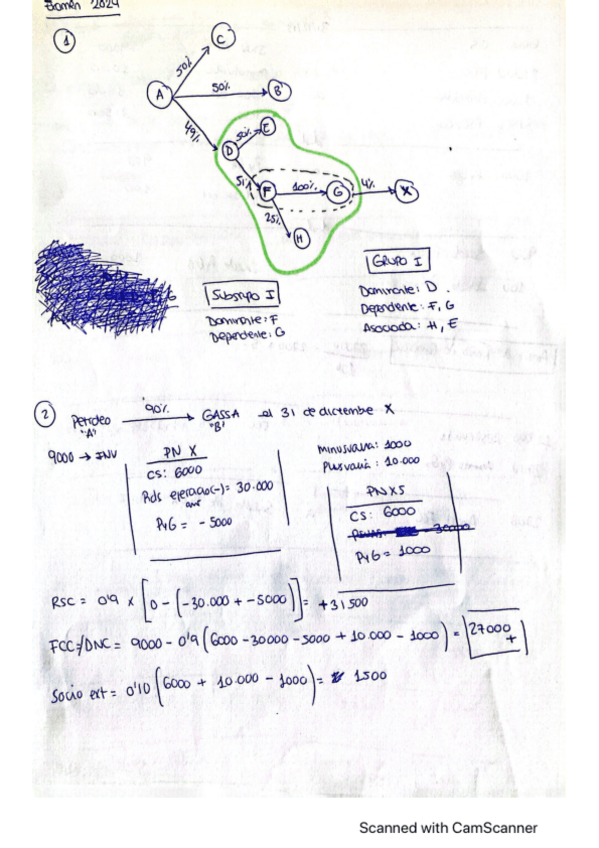 Examen 2024
1
C
50%
A
50%
B
49%
D
50%
E
51%
F
100%
G
4%
X
25%
H
Subgrupo I
Dominante: F
Dependiente: G
GRUPO I
Dominante: D.
Dependiente: F, G
Asociada: H, E
2
Petrdeo
"A"
90%
GASSA
"B"
el 31 de diciembre X
9000 → INV
PN X
CS: 6000
Rdos ejercicio(-) = 30.000
ant
PyG = - 5000
Minusvalia: 1000
Plusvalia: 10.000
PN X5
CS: 6000
30000
PyG = 1000
RSC = 0'9 x [0 - (-30.000 + -5000)] = +31500
FCC/DNC = 9000 - 0'9 (6000 - 30000 - 5000 + 10.000 - 1000) = 27000 +
Socio ext = 0'10 (6000 + 10.000 - 1000) = 1500
Scanned with CamScanner